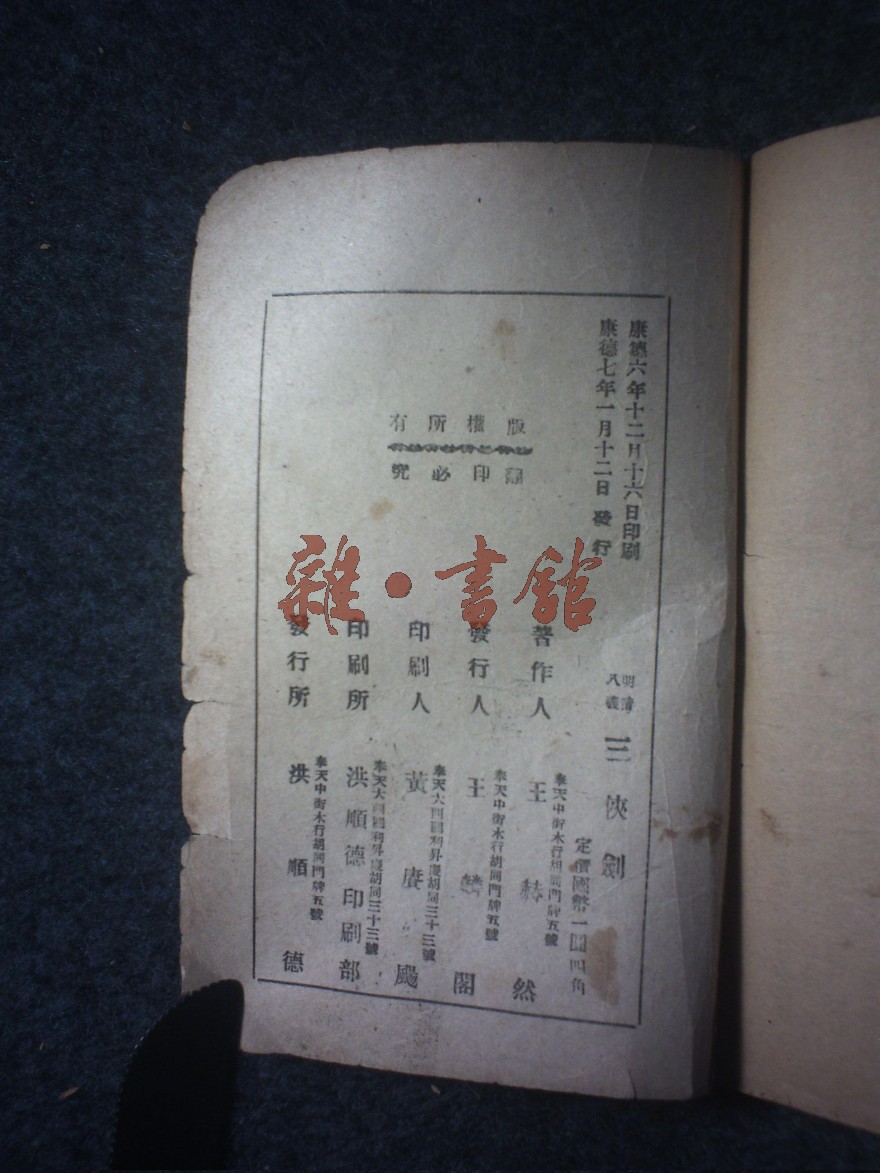 康德六年十二月十六日印刷
康德七年一月十二日發行
版權所有
翻印必究
明清
八義
三俠劍
定價國幣一圓四角
著作人
奉天中街木行胡同門牌五號
王赫然
發行人
奉天中街木行胡同門牌五號
王麟閣
印刷人
奉天大西關利昇慶胡同三十三號
黃賡颺
印刷所
奉天大西關利昇慶胡同三十三號
洪順德印刷部
發行所
奉天中街木行胡同門牌五號
洪順德
雜·書館